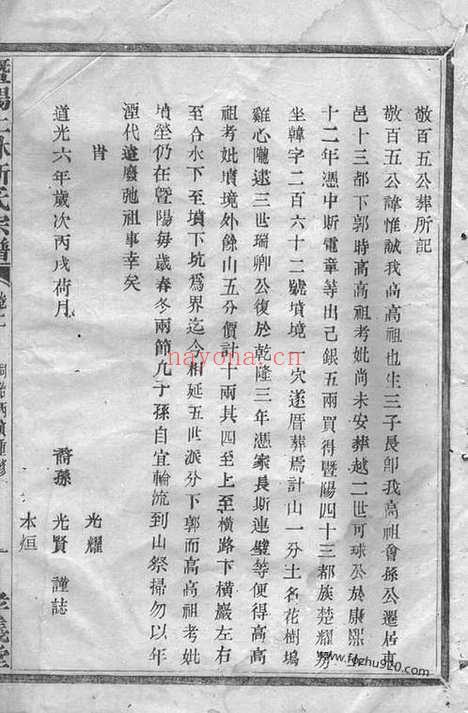 敬百五公葬所記
敬百五公諱惟誠我高高祖也生三子長即我高祖會孫公遷居東
邑十三都下郭時高高祖考妣尚未安葬越二世可球公於康熙
十二年憑中斯電章等出己銀五兩買得暨陽四十三都族楚耀房
坐韓字二百六十二號墳境一穴遂厝葬焉計山一分土名花樹塢
雞心隴逮三世瑞卿公復於乾隆三年憑家長斯連璧等便得高高
祖考妣墳境外餘山五分價計十兩其四至上至橫路下橫巖左右
至合水下至墳下坑為界迄今相延五世派分下郭而高高祖考妣
墳塋仍在暨陽每歲春冬兩節凡子孫自宜輪流到山祭掃勿以年
湮代遠廢弛祖事幸矣
旹
道光六年歲次丙戌荷月
光耀
裔孫 光賢 謹誌
本烜
暨陽上林斯氏宗譜
卷二
一
孝義堂
nayona.cn
www.fozhu920.com